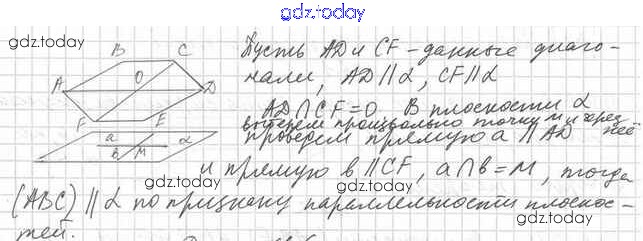 gdz.today
gdz.today
gdz.today
B C
A O D
F E
a
в M α
Пусть AD и CF – данные диаго-
нали, AD || α, CF || α
AD ∩ CF = O. В плоскости α
выберем произвольно точку M и через неё
проведем прямую a || AD
и прямую в || CF, a ∩ в = M, тогда
gdz.today
gdz.today
(ABC) || α по признаку параллельности плоскос-
тей.
gdz.today
gdz.today